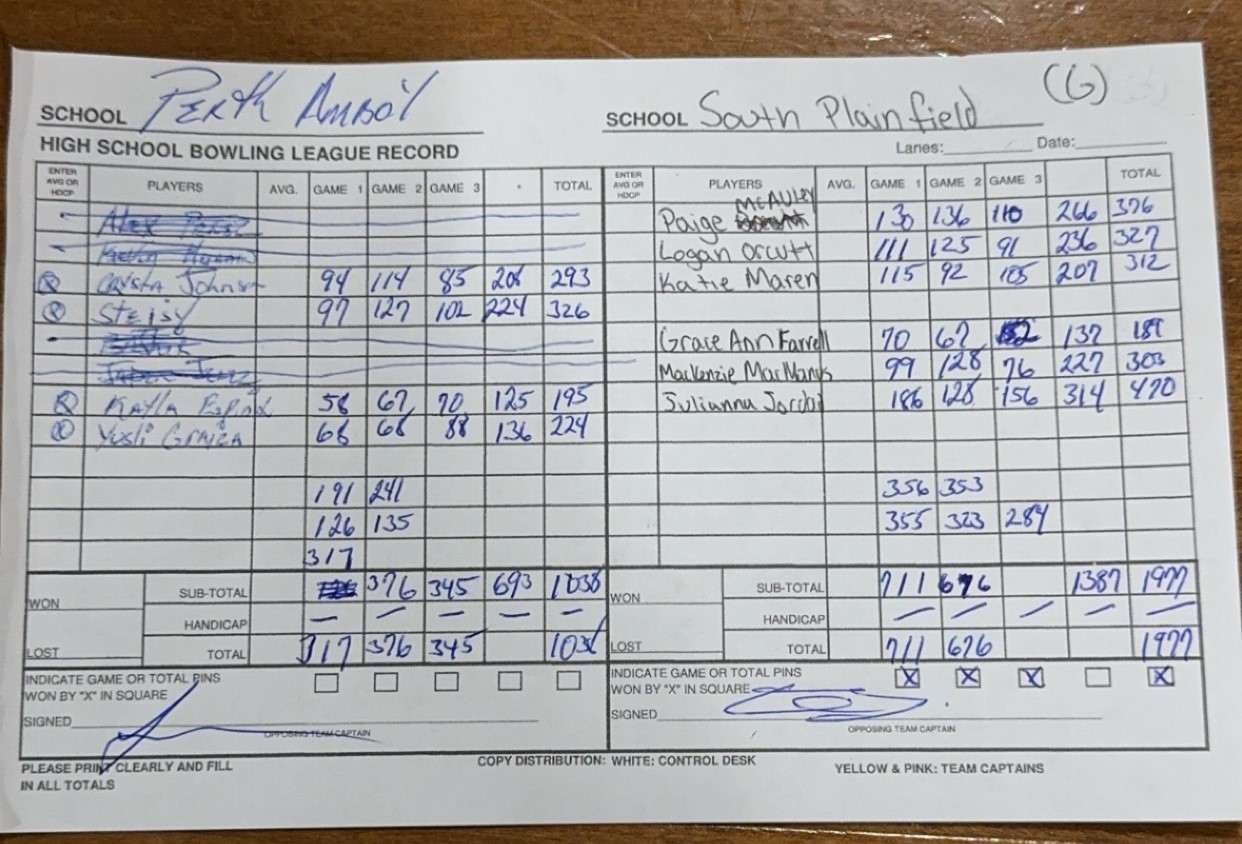 SCHOOL Perth Amboy SCHOOL South Plainfield (G)
HIGH SCHOOL BOWLING LEAGUE RECORD Lanes: Date:
ENTER AVG OR HDCP PLAYERS AVG. GAME 1 GAME 2 GAME 3 TOTAL ENTER AVG OR HDCP PLAYERS AVG. GAME 1 GAME 2 GAME 3 TOTAL
Alex Paige McAuley 130 136 110 266 376
Logan Orcutt 111 125 91 236 327
Johnson 94 114 85 208 293 Katie Maren 115 92 105 207 312
Steisy 97 127 102 224 326
Grace Ann Farrell 70 67 52 137 189
Mackenzie MacManus 99 128 76 227 303
Kayla 58 67 70 125 195 Julianna 186 128 156 314 470
68 68 88 136 224
191 241 356 353
126 135 355 323 284
317
WON SUB-TOTAL 376 345 693 1038 WON SUB-TOTAL 711 676 1387 1977
HANDICAP — — — — — HANDICAP — — — — —
LOST TOTAL 317 376 345 1038 LOST TOTAL 711 676 1977
INDICATE GAME OR TOTAL PINS INDICATE GAME OR TOTAL PINS
WON BY "X" IN SQUARE WON BY "X" IN SQUARE X X X X
SIGNED SIGNED
OPPOSING TEAM CAPTAIN OPPOSING TEAM CAPTAIN
PLEASE PRINT CLEARLY AND FILL COPY DISTRIBUTION: WHITE: CONTROL DESK YELLOW & PINK: TEAM CAPTAINS
IN ALL TOTALS